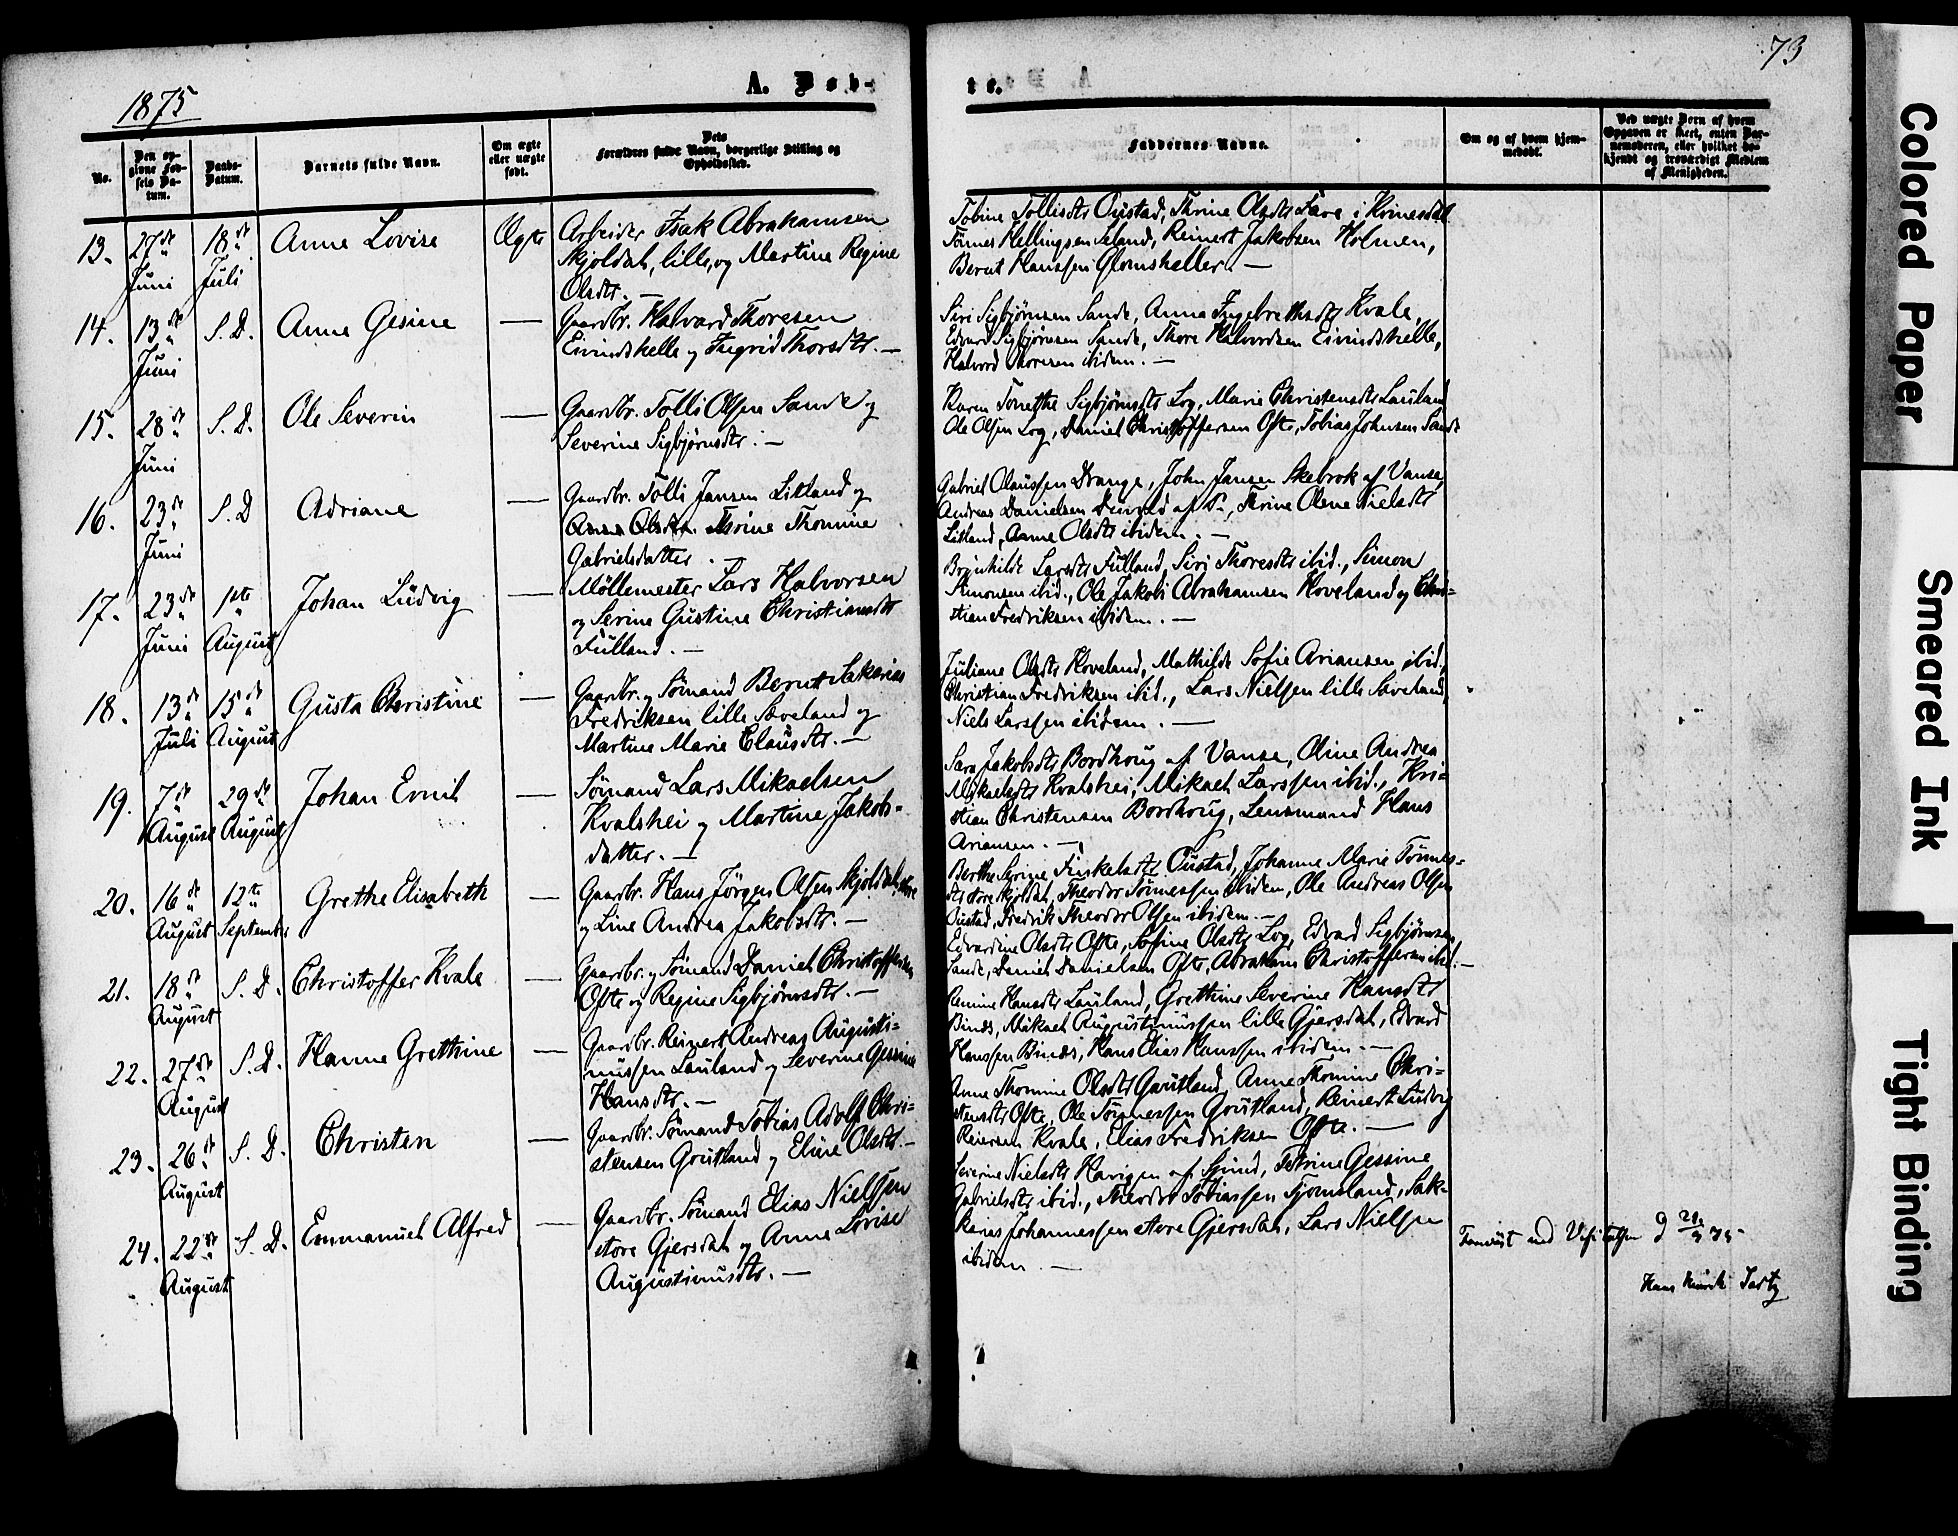 1875
A. Døb-
te.
73
No.
Den opgivne Fødsels Datum.
Daabs Datum.
Barnets fulde Navn.
Om ægte eller uægte født.
Dets Forældres fulde Navn, borgerlige Stilling og Opholdssted.
Faddernes Navne.
Om og af hvem hjemmedøbt.
Ved uægte Børn af hvem Opgaven er skeet, enten Barnemoderen, eller hvilket bekjendt og troværdigt Medlem af Menigheden.
13. 27de Juni 18de Juli Anne Lovise Ægte
Arbeider Isak Abrahamsen
Skjoldal, lille, og Martine Regine
Olsdtr. —
Tobine Tollisdtr Oustad, Thrine Olsdtr Fare i Kvinesdal
Tønnes Hellingsen Seland, Reinert Jakobsen Holmen,
Bernt Hanssen Glomsheller. —
14. 13de Juni S. D. Anne Gesine —
Gaardbr. Halvard Thoresen
Eivindshelle og Ingrid Thorsdtr. —
Siri Sigbjørnsen Sande, Anna Ingebrethsdtr Kvale,
Edvard Sigbjørnsen Sande, Thore Halvordsen Eivindshelle,
Halvord Thoresen ibidem. —
15. 28de Juni S. D. Ole Severin —
Gaardbr. Tolli Olsen Sande og
Severine Sigbjørnsdtr. —
Karen Tonethe Sigbjørnsdtr Log, Marie Christensdtr Lauland
Ole Olsen Log, Daniel Christoffersen Ofte, Tobias Johnsen Sande
16. 23de Juni S. D Adriane —
Gaardbr. Tolli Jansen Litland og
Anne Olsdtr. Thrine Thomine
Gabrielsdatter. —
Gabriel Olaussen Drange, John Jansen Skebrok af Vanse,
Andreas Danielsen af Do, Thrine Olene Nielsdtr
Litland, Anne Olsdtr ibidem. —
17. 23de Juni 1ste August Johan Ludvig —
Møllemester Lars Halvorsen
og Serine Gustine Christiansdtr
Fulland. —
Brynhilde Larsdtr Fulland, Siri Thoresdtr ibid., Simon
Simonsen ibid., Ole Jakob Abrahamsen Hoveland og Chri-
stian Fredriksen ibidem. —
18. 13de Juli 15de August Gusta Christine —
Gaardbr. og Sømand Bernt Sakarias
Fredriksen lille Sæveland og
Martine Marie Clausdtr. —
Juliane Olsdtr Hoveland, Mathilde Sofie Ariansen ibid.,
Christian Fredriksen ibid., Lars Nielsen lille Sæveland,
Niels Larssen ibidem. —
19. 7de August 29de August Johan Emil —
Sømand Lars Mikaelsen
Kvalshei og Martine Jakobs-
datter. —
Sara Jakobsdtr Bordhoug af Vanse, Oline Andrea
Mikaelsdtr Kvalshei, Mikael Larssen ibid., Kri-
stian Christensen Bordhoug, Lensmand Hans
Ariansen. —
20. 16de August 12te September Grethe Elisabeth —
Gaardbr. Hans Jørgen Olsen Skjoldal, store
og Line Andrea Jakobsdtr. —
Berthe Syrine Oustad, Johanne Marie Tønnes-
dtr store Skjoldal, Theodor Tønnessen ibidem, Ole Andreas Olsen
Oustad, Fredrik Theodor Olsen ibidem. —
21. 18de August S. D. Christoffer Kvale —
Gaardbr. og Sømand Daniel Christoffersen
Ofte og Regine Sigbjørnsdtr. —
Edvardine Olsdtr Ofte, Sofine Olsdtr Log, Edvard Sigbjørnsen
Sande, Daniel Danielsen Ofte, Abraham Christoffersen ibid. —
22. 27de August S. D. Hanne Grethine —
Gaardbr. Reinert Andreas Augusti-
nussen Lauland og Severine Gesine
Hansdtr. —
Remine Hansdtr Lauland, Grethine Severine Hansdtr
Binds, Mikael Augustinussen lille Gjersdal, Edvard
Hanssen Binds, Hans Elias Hanssen ibidem. —
23. 26de August S. D. Christen —
Gaardbr. Sømand Tobias Adolf Chri-
stensen Goutland og Eline Olsdtr. —
Anne Thomine Olsdtr Goutland, Anne Thomine Chri-
stensdtr Ofte, Ole Tønnessen Goutland, Reinert Ludvig
Reiersen Kvale, Elias Fredriksen Ofte. —
24. 22de August S. D. Emmanuel Alfred —
Gaardbr. Sømand Elias Nielsen
store Gjersdal og Anne Lovise
Augustinusdtr. —
Severine Nielsdtr Havigen af Spind, Petrine Gessine
Gabrielsdtr ibid., Theodor Tobiassen Fjomsland, Sak-
karias Johannessen store Gjersdal, Lars Nielsen
ibidem. —
Colored Paper
Smeared Ink
Tight Binding